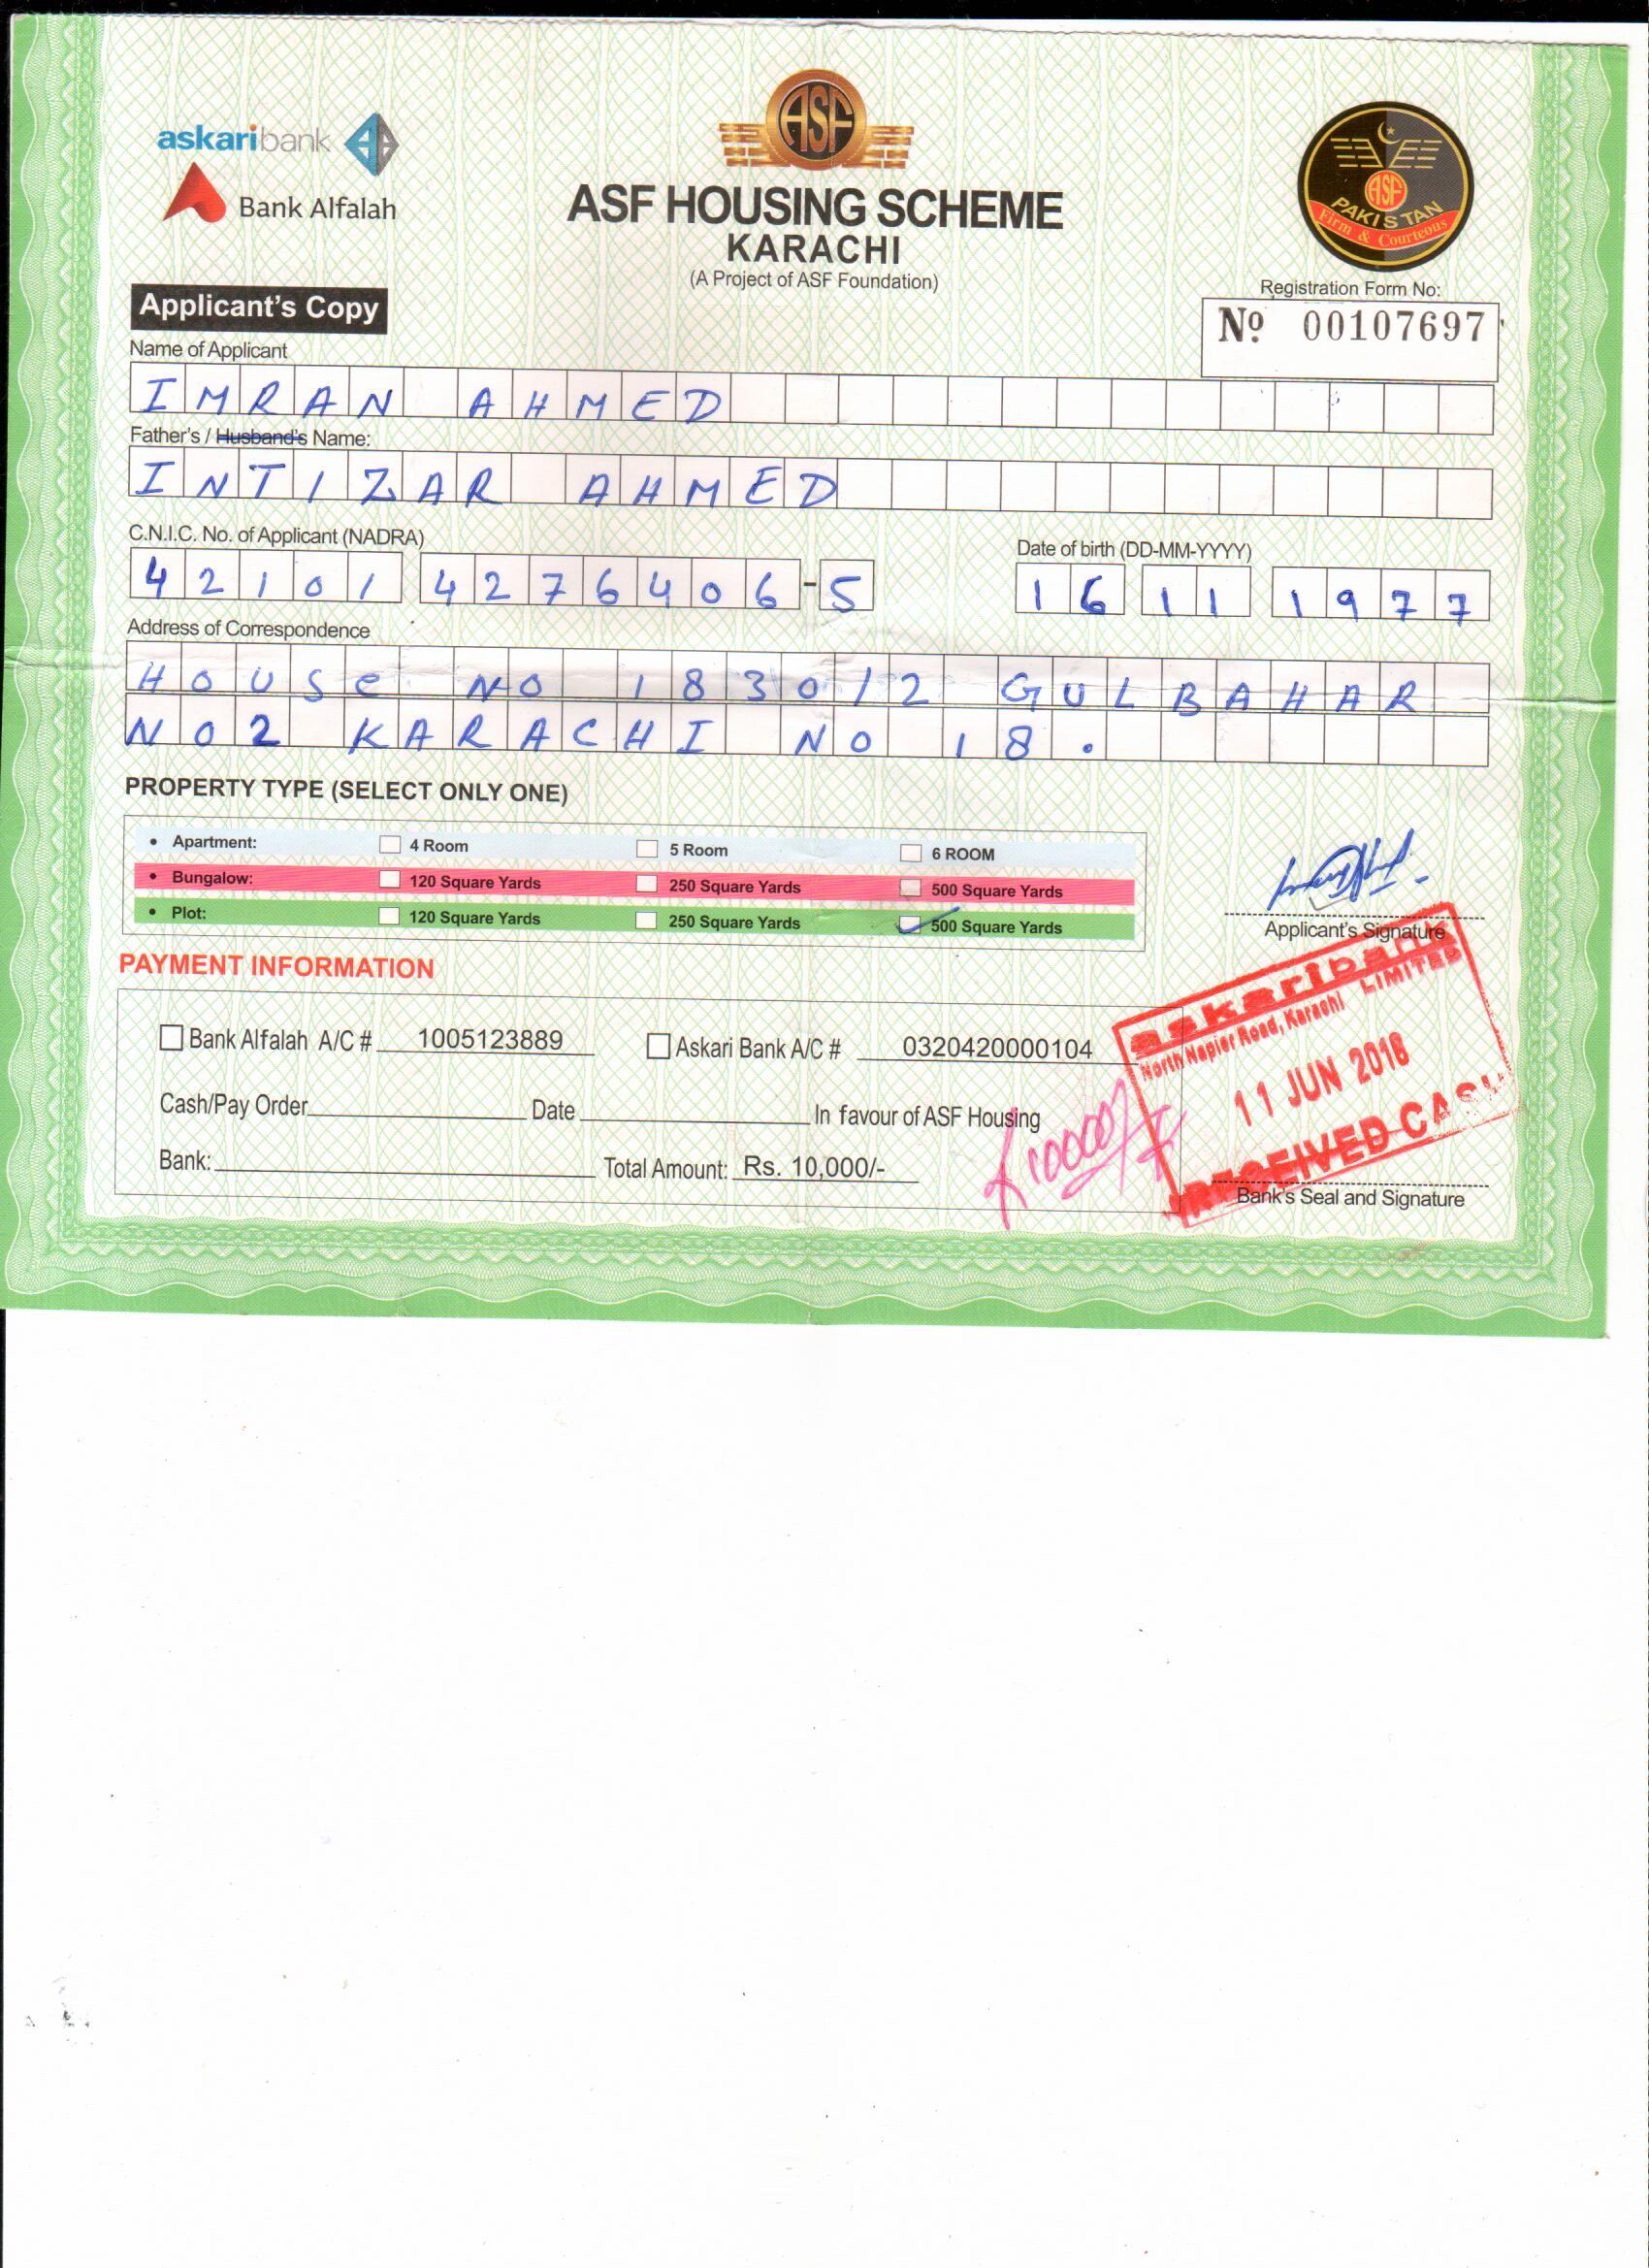 askaribank
Bank Alfalah
ASF
ASF HOUSING SCHEME
KARACHI
(A Project of ASF Foundation)
ASF
PAKISTAN
Firm & Courteous
Registration Form No:
Nº 00107697
Applicant's Copy
Name of Applicant
IMRAN AHMED
Father's / Husband's Name:
INTIZAR AHMED
C.N.I.C. No. of Applicant (NADRA)
42101 4276406-5
Date of birth (DD-MM-YYYY)
16 11 1977
Address of Correspondence
HOUSe NO 1830/2 GULBAHAR
NO2 KARACHI NO 18.
PROPERTY TYPE (SELECT ONLY ONE)
• Apartment: 4 Room 5 Room 6 ROOM
• Bungalow: 120 Square Yards 250 Square Yards 500 Square Yards
• Plot: 120 Square Yards 250 Square Yards 500 Square Yards
Applicant's Signature
PAYMENT INFORMATION
Bank Alfalah A/C # 1005123889 Askari Bank A/C # 0320420000104
Cash/Pay Order Date In favour of ASF Housing
Bank: Total Amount: Rs. 10,000/-
10000/
askaribank
LIMITED
North Napier Road, Karachi
11 JUN 2018
RECEIVED CASH
Bank's Seal and Signature